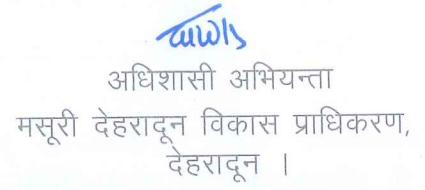 अधिशासी अभियन्ता
मसूरी देहरादून विकास प्राधिकरण,
देहरादून ।